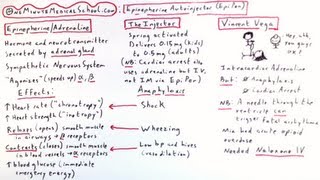 OneMinuteMedicalSchool.com: Epinephrine Autoinjector (EpiPen)
Epinephrine/Adrenaline
Hormone and neurotransmitter
secreted by adrenal gland
Sympathetic Nervous System
"Agonizes" (speeds up) α, β
Effects:
↑ Heart rate ("chronotropy")
↑ Heart strength ("inotropy")
Relaxes (opens) smooth muscle
in airways → β receptors
Contracts (closes) smooth muscle
in blood vessels → α receptors
↑ blood glucose (immediate
emergency energy)
The Injector
Spring activated
Delivers 0.15mg (kids)
to 0.3mg (adults)
(NB: Cardiac arrest also
uses adrenaline but IV,
not IM via EpiPen)
Anaphylaxis
Shock
Wheezing
Low bp and hives
(vasodilation)
Vincent Vega
Intracardiac Adrenaline
But: Anaphylaxis
Cardiac Arrest
NB: A needle through the
ventricle can
trigger fatal arrhythmia
Mia had acute opioid
overdose
Needed Naloxone IV